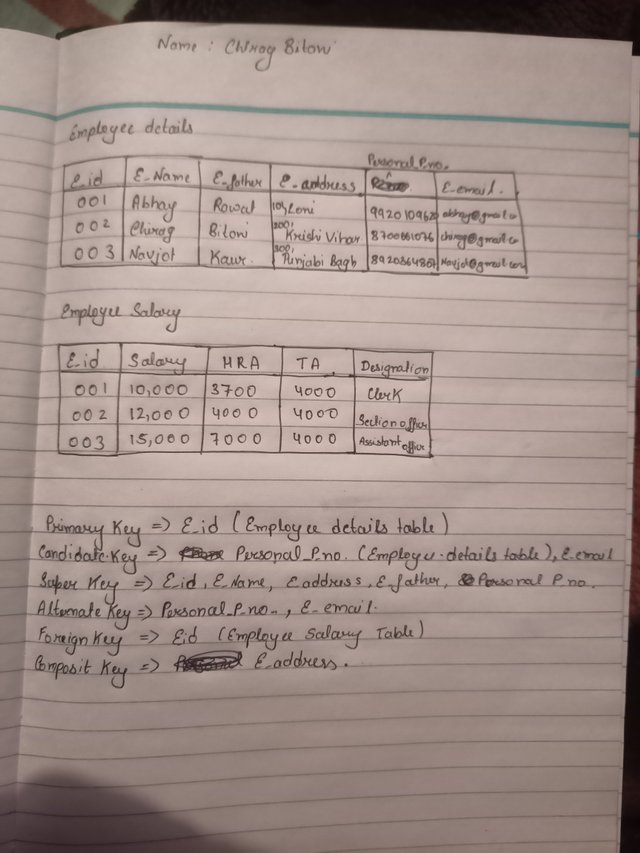 Name : Chirag Bitoni
Employee details
Personal P.no.
E_id E_Name E_father E_address E_email.
001 Abhay Rawat 105, Loni 9920109620 abhay@gmail.co
002 Chirag Bitoni 200, Krishi Vihar 8700661076 chirag@gmail.co
003 Navjot Kaur. 300, Punjabi Bagh 8920364867 Navjot@gmail.com
Employee Salary
E_id Salary HRA TA Designation
001 10,000 3700 4000 Clerk
002 12,000 4000 4000 Section officer
003 15,000 7000 4000 Assistant officer
Primary Key => E_id (Employee details table)
Candidate Key => Personal_P_no. (Employee details table), E_email
Super Key => E_id, E_Name, E_address, E_father, Personal P_no.
Alternate Key => Personal_P_no., E_email.
Foreign Key => Eid (Employee Salary Table)
Composit Key => E_address.